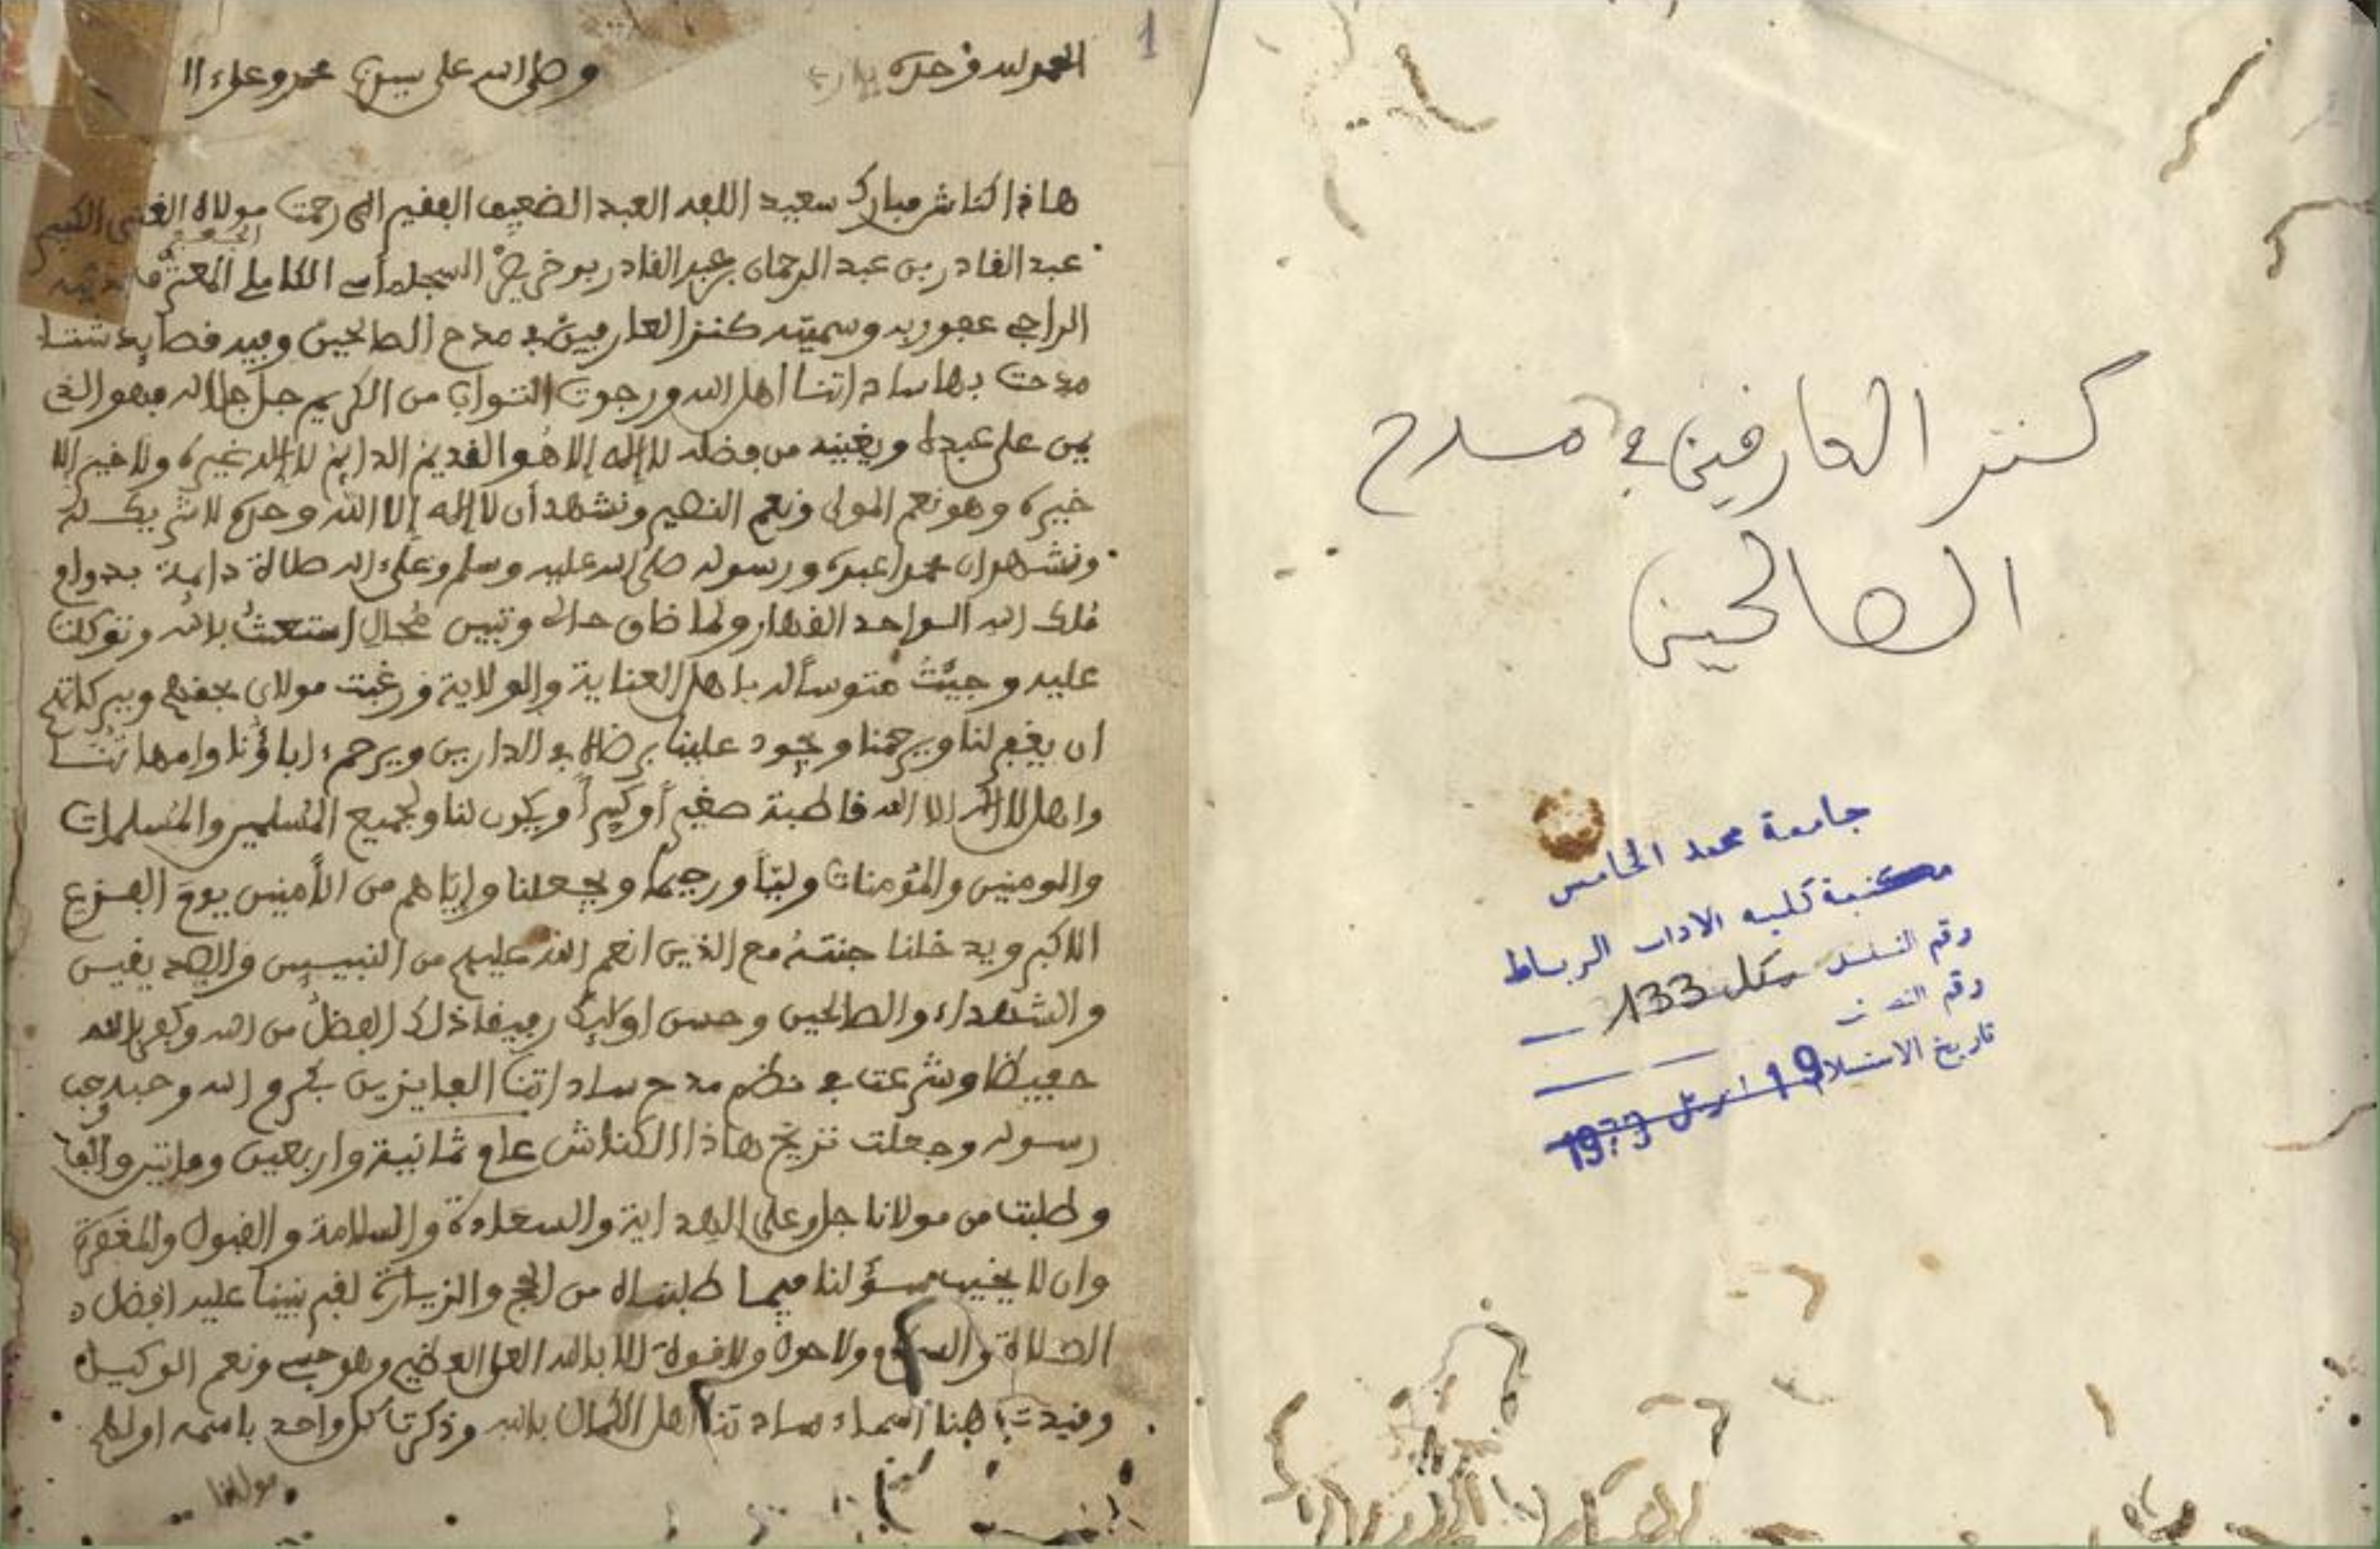 كنز العارفين في مدح
الصالحين
جامعة محمد الخامس
مكتبة كلية الاداب الرباط
رقم التسلسل مكل 133
رقم
تاريخ الاستلام 19 ابريل
1
الحمد لله وحده وصلى الله على سيدنا محمد وعلى ءا
هاذا كناش مبارك سعيد اللعبد العبد الضعيف الفقير الى رحمت مولاه الغني الكبير
عبد القادر بن عبد الرحمان بن عبد القادر بوخريص السجلماسي الكاملي المعترف
الراجي عفو ربه وسميته كنز العارفين في مدح الصالحين وفيه قصايد شتا
مدحت بها ساداتنا اهل الله ورجوت الثواب من الكريم جل جلاله فهو الذي
يمن على عبده ويغنيه من فضله لا إله إلا هو القديم الدايم لا إله غيره ولا خير إلا
خيره وهو نعم المولى ونعم النصير ونشهد أن لا إله إلا الله وحده لا شريك له
ونشهد ان محمدا عبده ورسوله صلى الله عليه وسلم وعلى اله صلاة دايمة بدوام
ملك الله الواحد القهار ولما ضاق حال وتبين محال استعثت بالله وتوكلت
عليه وجيئت متوسأله باهل العناية والولاية ورغبت مولاي بحقهم وببركاتهم
ان يغفر لنا ويرحمنا ويجود علينا برضاه في الدارين ويرحم ءاباؤنا وامهاتنا
واهل لا اله الا الله قاطبة صغيراً وكبيراً ويكون لنا ولجميع المسلمين والمسلمات
والمومنين والمؤمنات وليّاً ورحيما ويجعلنا وإيّاهم من الأمنين يوم الفزع
الاكبر ويدخلنا جنته مع الذين انعم الله عليهم من النبيين والصديقين
والشهداء والصالحين وحسن اولايك رفيقا ذلك الفضل من الله وكفى بالله
حفيظا وشرعت في نظم مدح ساداتنا الفايزين بكرم الله وحبه وحب
رسوله وجعلت تريخ هاذا الكناش عام ثمانية واربعين وماتير والف
وطلبت من مولانا جل وعلى الهداية والسعادة والسلامة والقبول والمغفرة
وان لا يخيب سؤلنا فيما طلبناه من الحج والزيارة لقبر نبينا عليه افضل
الصلاة والسلام ولا حول ولا قوة الا بالله العلي العظيم وهو حسبي ونعم الوكيل
وقيدت هنا اسماء ساداتنا اهل الكمال بالله وذكرت كل واحد باسمه اولهم
مولانا